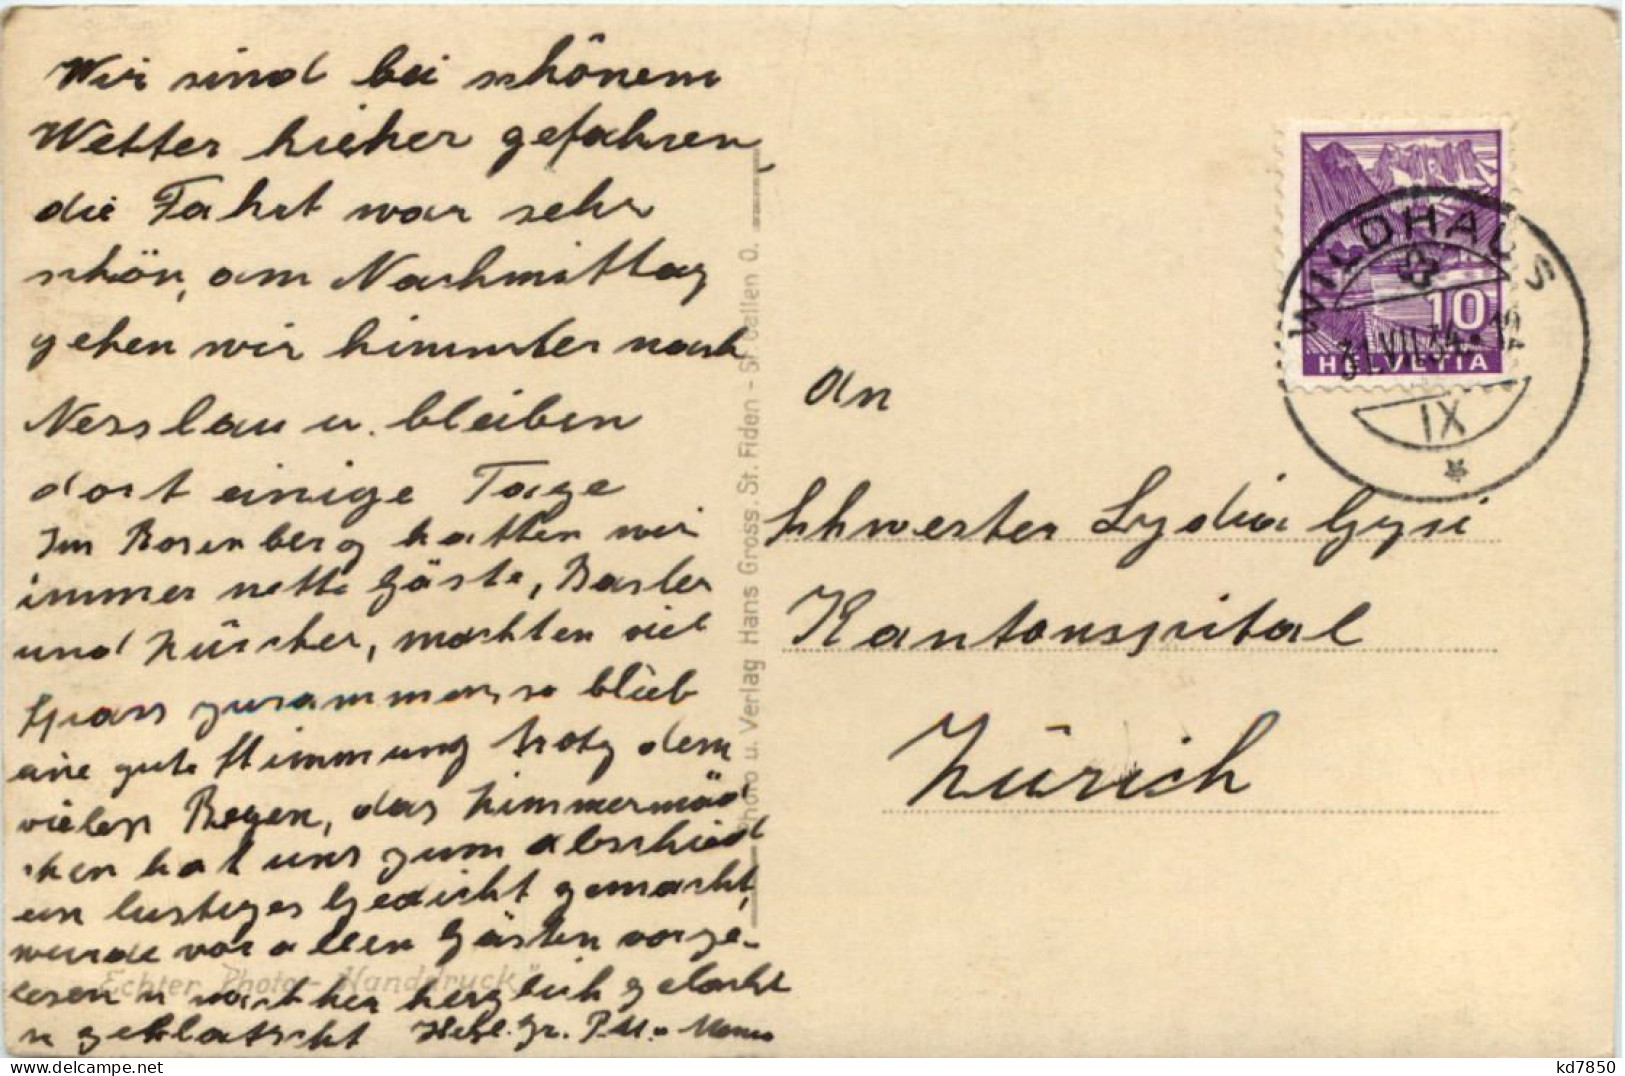 Wir sind bei schönem
Wetter hieher gefahren,
die Fahrt war sehr
schön, am Nachmittag
gehen wir himmter nach
Nesslau u. bleiben
dort einige Tage
Im Rosenberg hatten wir
immer nette Gäste, Basler
und Zürcher, machten viel
Spass zusammen, so blieb
eine gute Stimmung trotz dem
vielen Regen, das Zimmermäd
chen hat uns zum abschied
ein lustiges Gedicht gemacht,
wurde vor allen Gästen vorge-
lesen u nachher herzlich gelacht
u geklatscht Herzl. Gr. P. u. Mama
Echter Photo-Handdruck
Photo u. Verlag Hans Gross, St. Fiden - St. Gallen O.
WILDHAUS
31.VII.34.
IX
10
HELVETIA
An
Schwester Lydia Gysi
Kantonspital
Zürich
kd7850